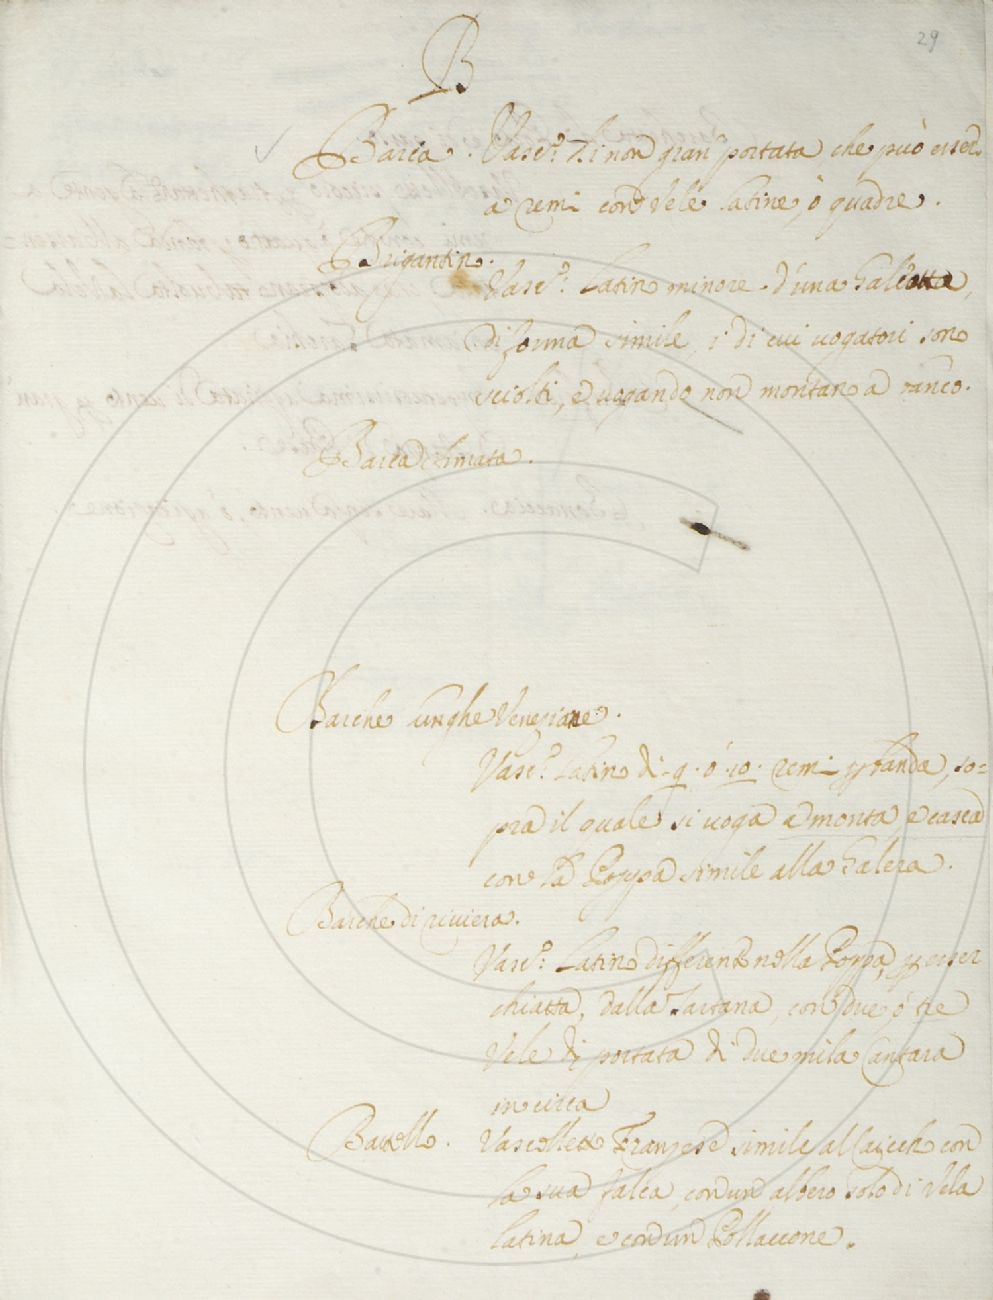 29
B
Barca. Vasc.o di non gran portata che può esser
a remi con Vele latine, ò quadre.
Brigantin.
Vasc.o Latin minore d'una Galeotta,
di forma simile, i di cui vogatori son
sciolti, e vogando non montan a banco.
Barca armata.
Barche lunghe Veneziane.
Vasc.o Latino di 9. ò 10. remi p banda, so=
pra il quale si voga a monta, e casca
con la Poppa simile alla Galera.
Barche di riviera.
Vasc.o Latino differente nella Poppa, p esser
chiatta, dalla Tartana, con due, ò tre
Vele di portata di due mila Cantara
in circa
Battello. Vascelletto Franzese simile al Caicch con
la sua falca, con un albero solo di Vela
latina, e con un Pollaccone.